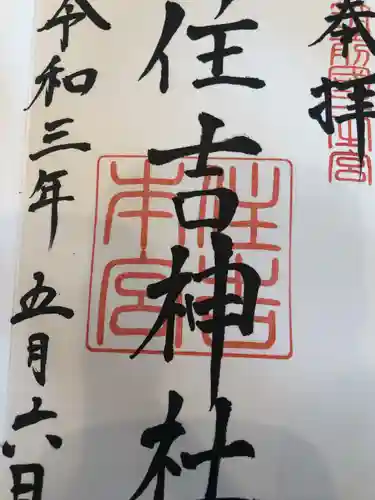 奉拝
住吉神社
令和三年五月六日
住吉本宮